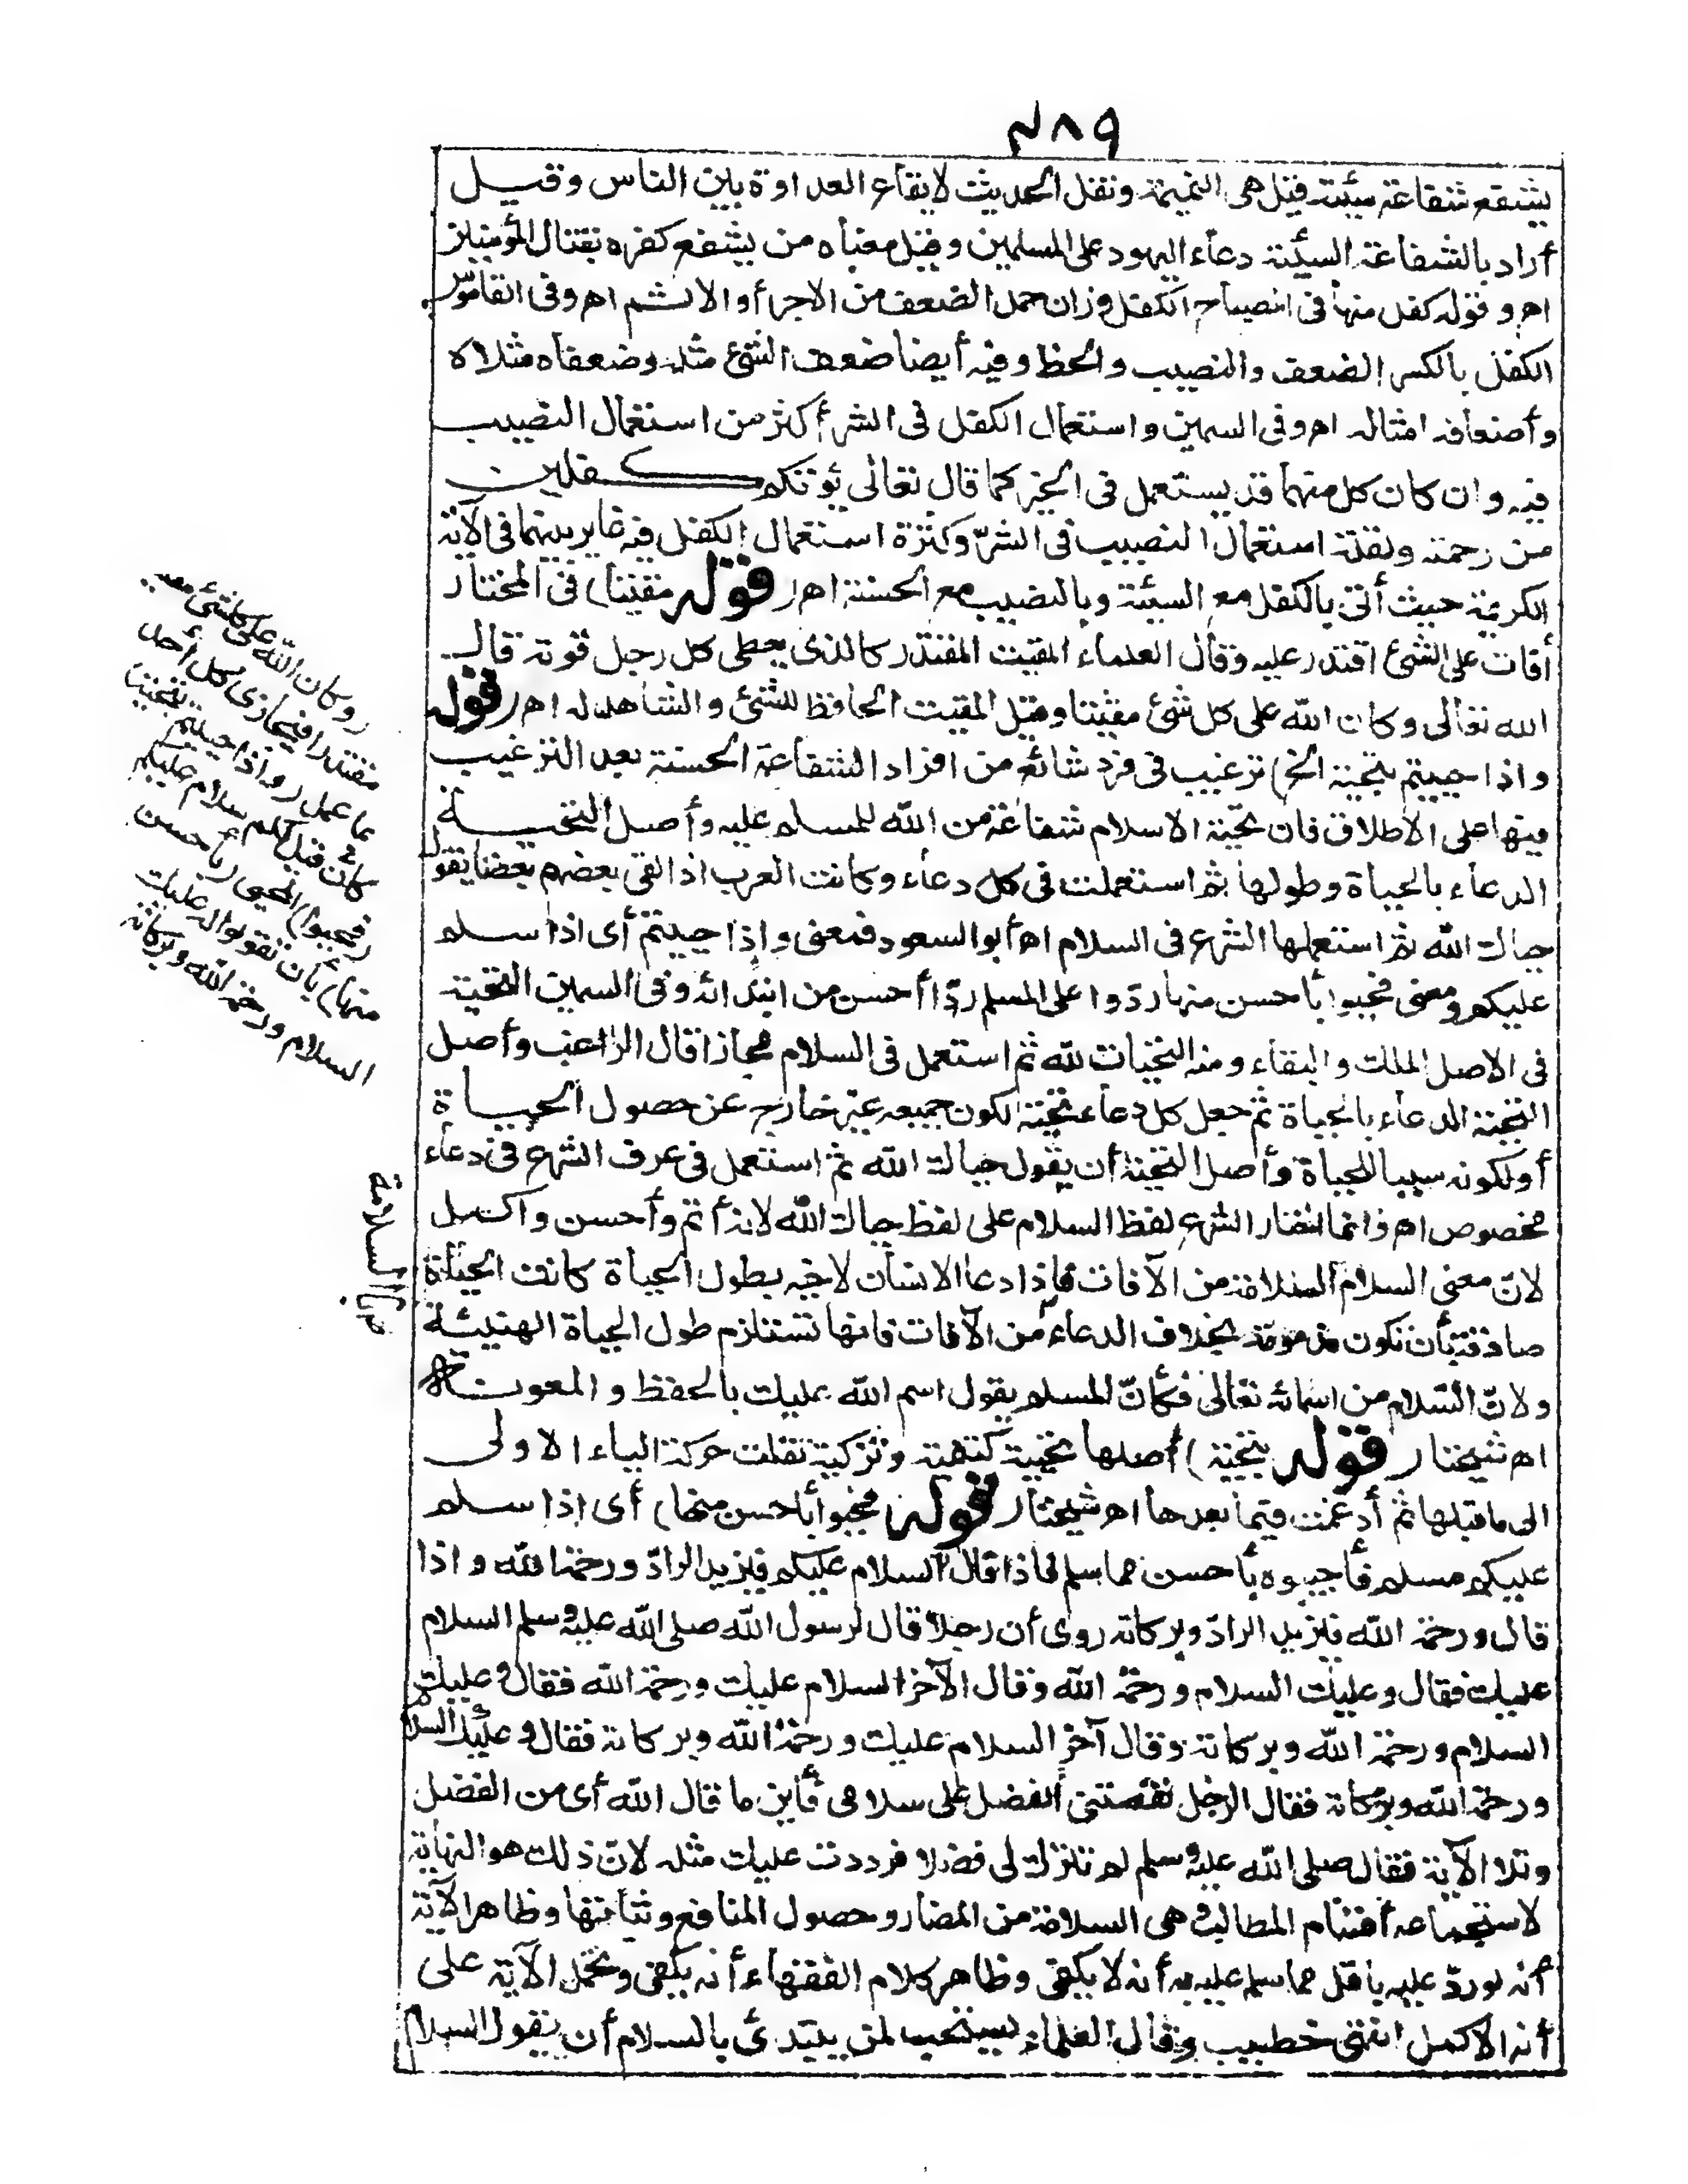 ٤٨٩
يشفع شفاعة سيئة قيل هى النميمة ونقل الحديث لايقاع العداوة بين الناس وقيل
أراد بالشفاعة السيئة دعاء اليهود على المسلمين وقيل معناه من يشفع كفره بقتال المؤمنين
اهـ وقوله كفل منها فى المصباح الكفل وزان حمل الضعف من الاجر أو الاثم اهـ وفى القاموس
الكفل بالكسر الضعف والنصيب والحظ وفيه أيضا ضعف الشئ مثله وضعفاه مثلاه
وأضعافه امثاله اهـ وفى السمين واستعمال الكفل فى الشر أكثر من استعمال النصيب
فيه وان كان كل منهما قد يستعمل فى الخير كما قال تعالى يؤتكم كفلين
من رحمته ولقلة استعمال النصيب فى الشرّ وكثرة استعمال الكفل فيه غاير بينهما فى الآية
الكريمة حيث أتى بالكفل مع السيئة وبالنصيب مع الحسنة اهـ (قوله مقيتا) فى المختار
أقات على الشئ اقتدر عليه وقال العلماء المقيت المقتدر كالذى يعطى كل رجل قوته قال
الله تعالى وكان الله على كل شئ مقيتا وقيل المقيت الحافظ للشئ والشاهد له اهـ (قوله
واذا حييتم بتحية الخ) ترغيب فى فرد شائع من افراد الشفاعة الحسنة بعد الترغيب
فيها على الاطلاق فان تحية الاسلام شفاعة من الله للمسلم عليه وأصل التحية
الدعاء بالحياة وطولها ثم استعملت فى كل دعاء وكانت العرب اذا لقى بعضهم بعضا يقول
حياك الله ثم استعملها الشرع فى السلام اهـ أبو السعود فمعنى واذا حييتم أى اذا سلم
عليكم ومعنى فحيوا بأحسن منها ردّوا على المسلم ردّا أحسن من ابتدائه وفى السمين التحية
فى الاصل الملك والبقاء ومنه التحيات لله ثم استعمل فى السلام مجازا قال الراغب وأصل
التحية الدعاء بالحياة ثم جعل كل دعاء تحية لكون جميعه غير خارج عن حصول الحياة
أو لكونه سببا للحياة وأصل التحية أن يقول حياك الله ثم استعمل فى عرف الشرع فى دعاء
مخصوص اهـ وانما اختار الشرع لفظ السلام على لفظ حياك الله لانه أتم وأحسن وأكمل
لانّ معنى السلام السلامة من الآفات فاذا دعا الانسان لاخيه بطول الحياة كانت الحياة
صادقة بأن تكون مذمومة بخلاف الدعاء من الآفات فانها تستلزم طول الحياة الهنيئة
ولانّ السّلام من اسمائه تعالى فكأنّ المسلم يقول اسم الله عليك بالحفظ والمعونة
اهـ شيخنا (قوله بتحية) أصلها تحيية كتنمية وتزكية نقلت حركة الياء الاولى
الى ما قبلها ثم أدغمت فيما بعدها اهـ شيخنا (قوله فحيوا بأحسن منها) أى اذا سلم
عليكم مسلم فأجيبوه بأحسن مما سلم فاذا قال السلام عليكم فيزيد الرادّ ورحمة الله واذا
قال ورحمة الله فيزيد الرادّ وبركاته روى أن رجلا قال لرسول الله صلى الله عليه وسلم السلام
عليك فقال وعليك السلام ورحمة الله وقال الآخر السلام عليك ورحمة الله فقال وعليك
السلام ورحمة الله وبركاته وقال آخر السلام عليك ورحمة الله وبركاته فقال وعليك السلام
ورحمة الله وبركاته فقال الرجل نقصتنى الفضل على سلامى فأين ما قال الله أى من الفضل
وتلا الآية فقال صلى الله عليه وسلم لم تترك لى فضلا فرددت عليك مثله لانّ ذلك هو النهاية
لاستجماعه أقسام المطالب وهى السلامة من المضار وحصول المنافع وثباتها وظاهر الآية
أنه لو ردّ عليه باقل مما سلم عليه به أنه لا يكفى وظاهر كلام الفقهاء أنه يكفى وتحمل الآية على
أنه الاكمل انتهى خطيب وقال العلماء يستحب لمن يبتدئ بالسلام أن يقول السلام
(وكان الله على كل شئ مقيتا)
مقتدرا فيجازى كل أحد
بما عمل (واذا حييتم بتحية)
كأن قيل لكم سلام عليكم
(فحيوا) المحيى (بأحسن
منها) بأن تقولوا له عليك
السلام ورحمة الله وبركاته
من السلامة